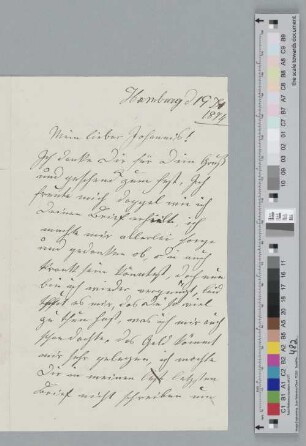 Hamburg d 19
1874
Mein lieber Johannes!
Ich danke Dir für Dein Gruß
und geschenk zum fest, Ich
freute mich doppel wie ich
Deinen Brief erhielt ich
machte mir allerlei sorge
und gedanken ob Du auch
krank sein konntest, doch nun
bin ich wieder vergnügt, leid
ist es mir, das Du so viel
zu thun hast, was ich mir auch
schon dachte, das Geld kommt
mir sehr gelegen, ich mochte
Dir in meinen letzten
Brief nicht schreiben um
482
the scale towards document